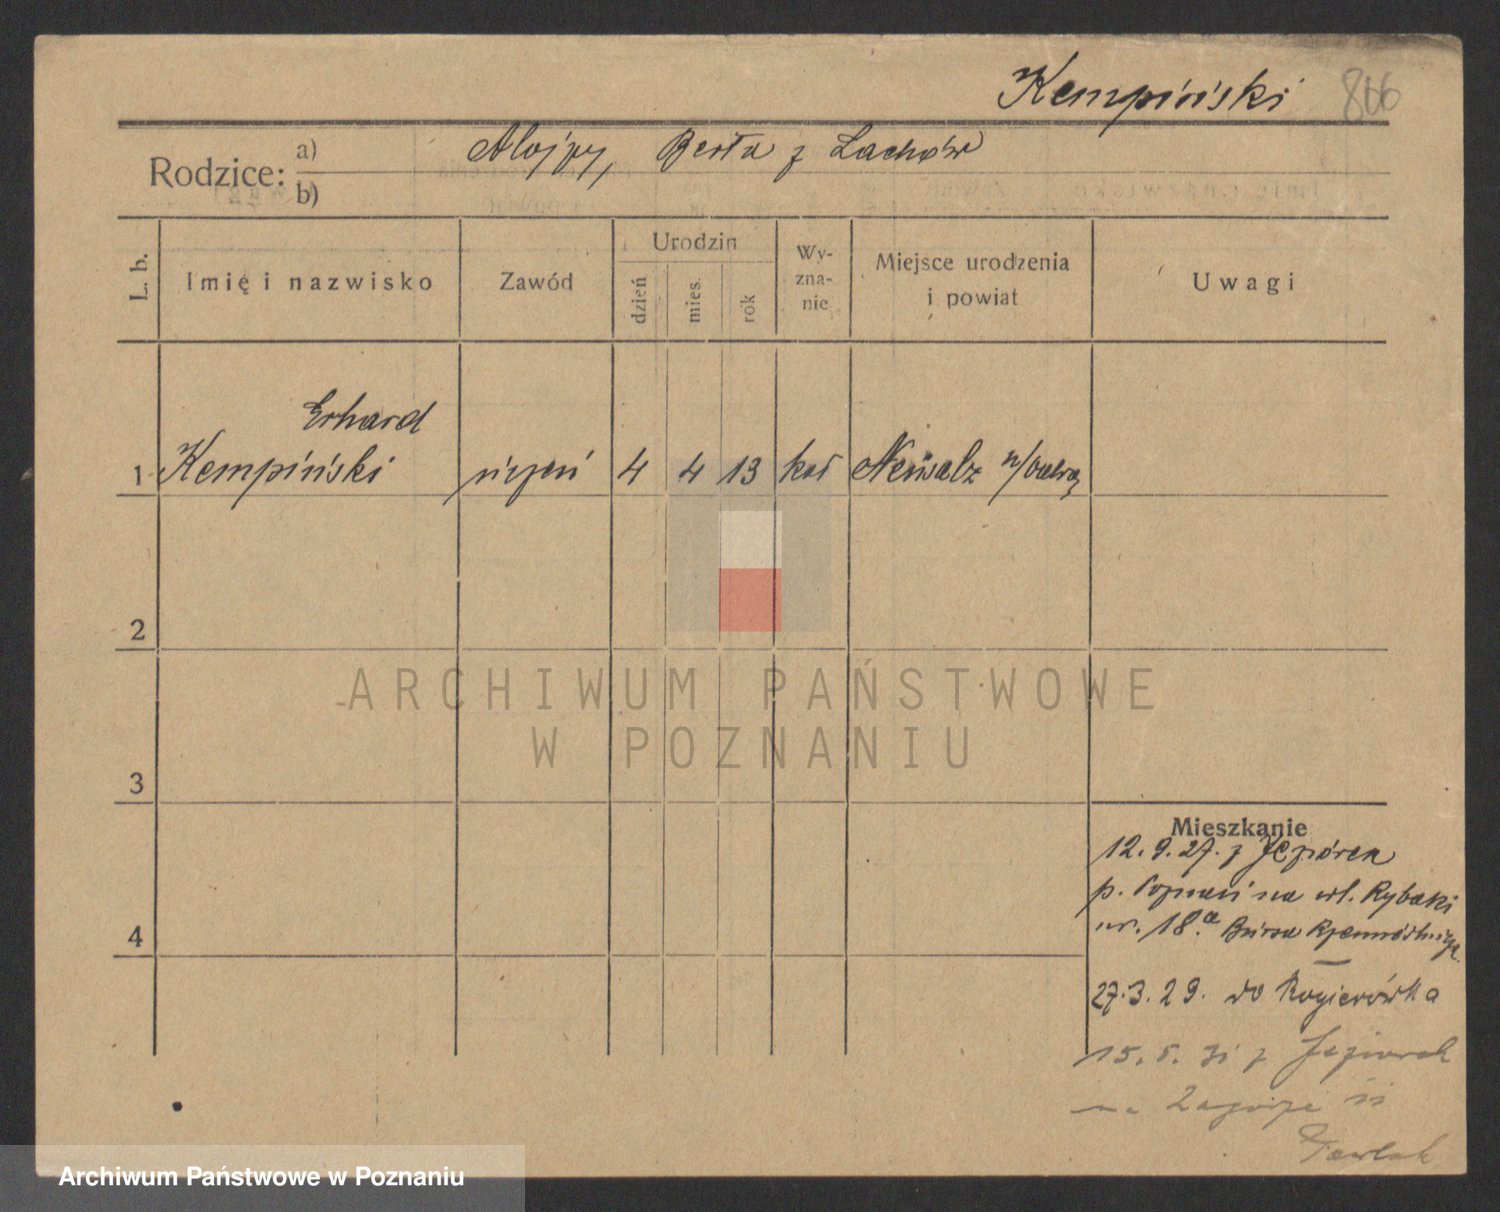 Kempiński 806
Rodzice: a) Alojzy, Berta z Lachów
b)
L. b. Imię i nazwisko Zawód Urodzin dzień mies. rok Wy-zna-nie Miejsce urodzenia i powiat Uwagi
Erhard
1 Kempiński uczeń 4 4 13 kat Neusalz n/Odrą
2
ARCHIWUM PAŃSTWOWE
W POZNANIU
3
Mieszkanie
12.9.27. z Jeziorek
p. Poznań na ul. Rybaki
4
nr. 18.a Bursa
27.3.29. do Rogierówka
15.5.31 z
na Zagórze 11
Pawlak
Archiwum Państwowe w Poznaniu